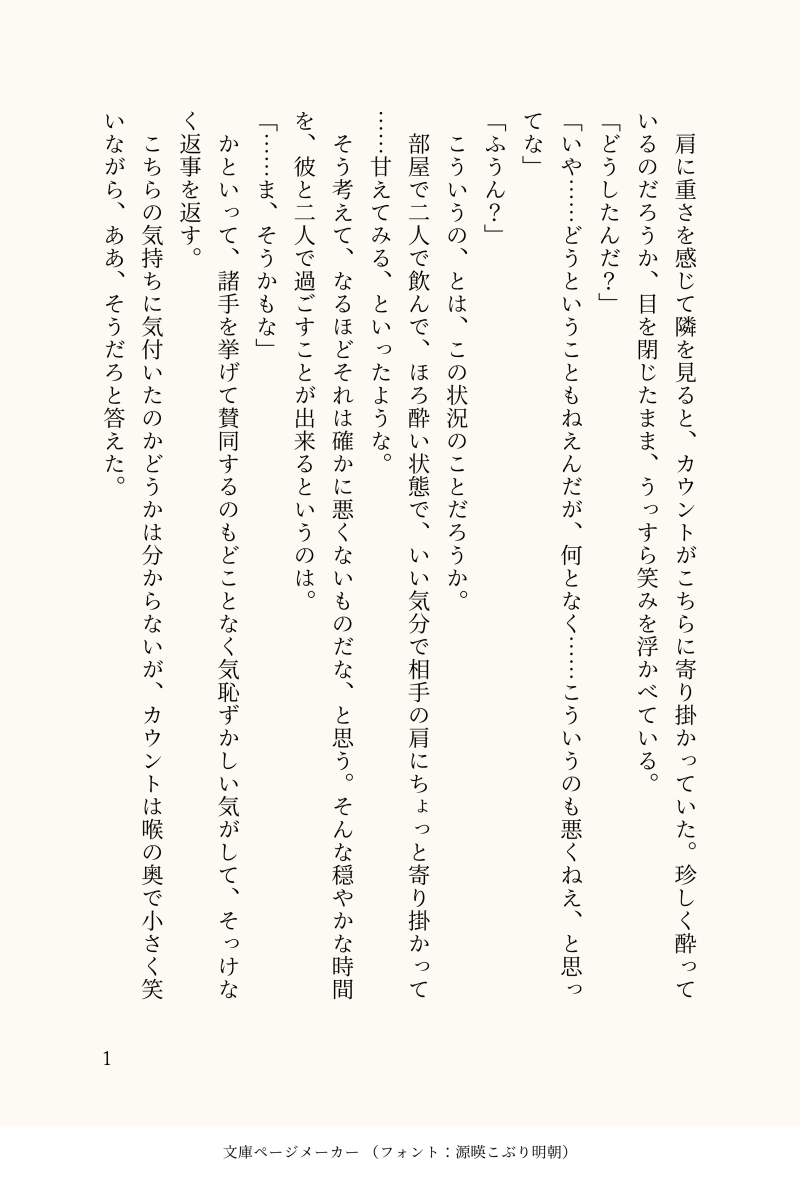 肩に重さを感じて隣を見ると、カウントがこちらに寄り掛かっていた。珍しく酔って
いるのだろうか、目を閉じたまま、うっすら笑みを浮かべている。
「どうしたんだ？」
「いや……どうということもねえんだが、何となく……こういうのも悪くねえ、と思っ
てな」
「ふうん？」
　こういうの、とは、この状況のことだろうか。
　部屋で二人で飲んで、ほろ酔い状態で、いい気分で相手の肩にちょっと寄り掛かって
……甘えてみる、といったような。
　そう考えて、なるほどそれは確かに悪くないものだな、と思う。そんな穏やかな時間
を、彼と二人で過ごすことが出来るというのは。
「……ま、そうかもな」
　かといって、諸手を挙げて賛同するのもどことなく気恥ずかしい気がして、そっけな
く返事を返す。
　こちらの気持ちに気付いたのかどうかは分からないが、カウントは喉の奥で小さく笑
いながら、ああ、そうだろと答えた。
1
文庫ページメーカー （フォント：源暎こぶり明朝）